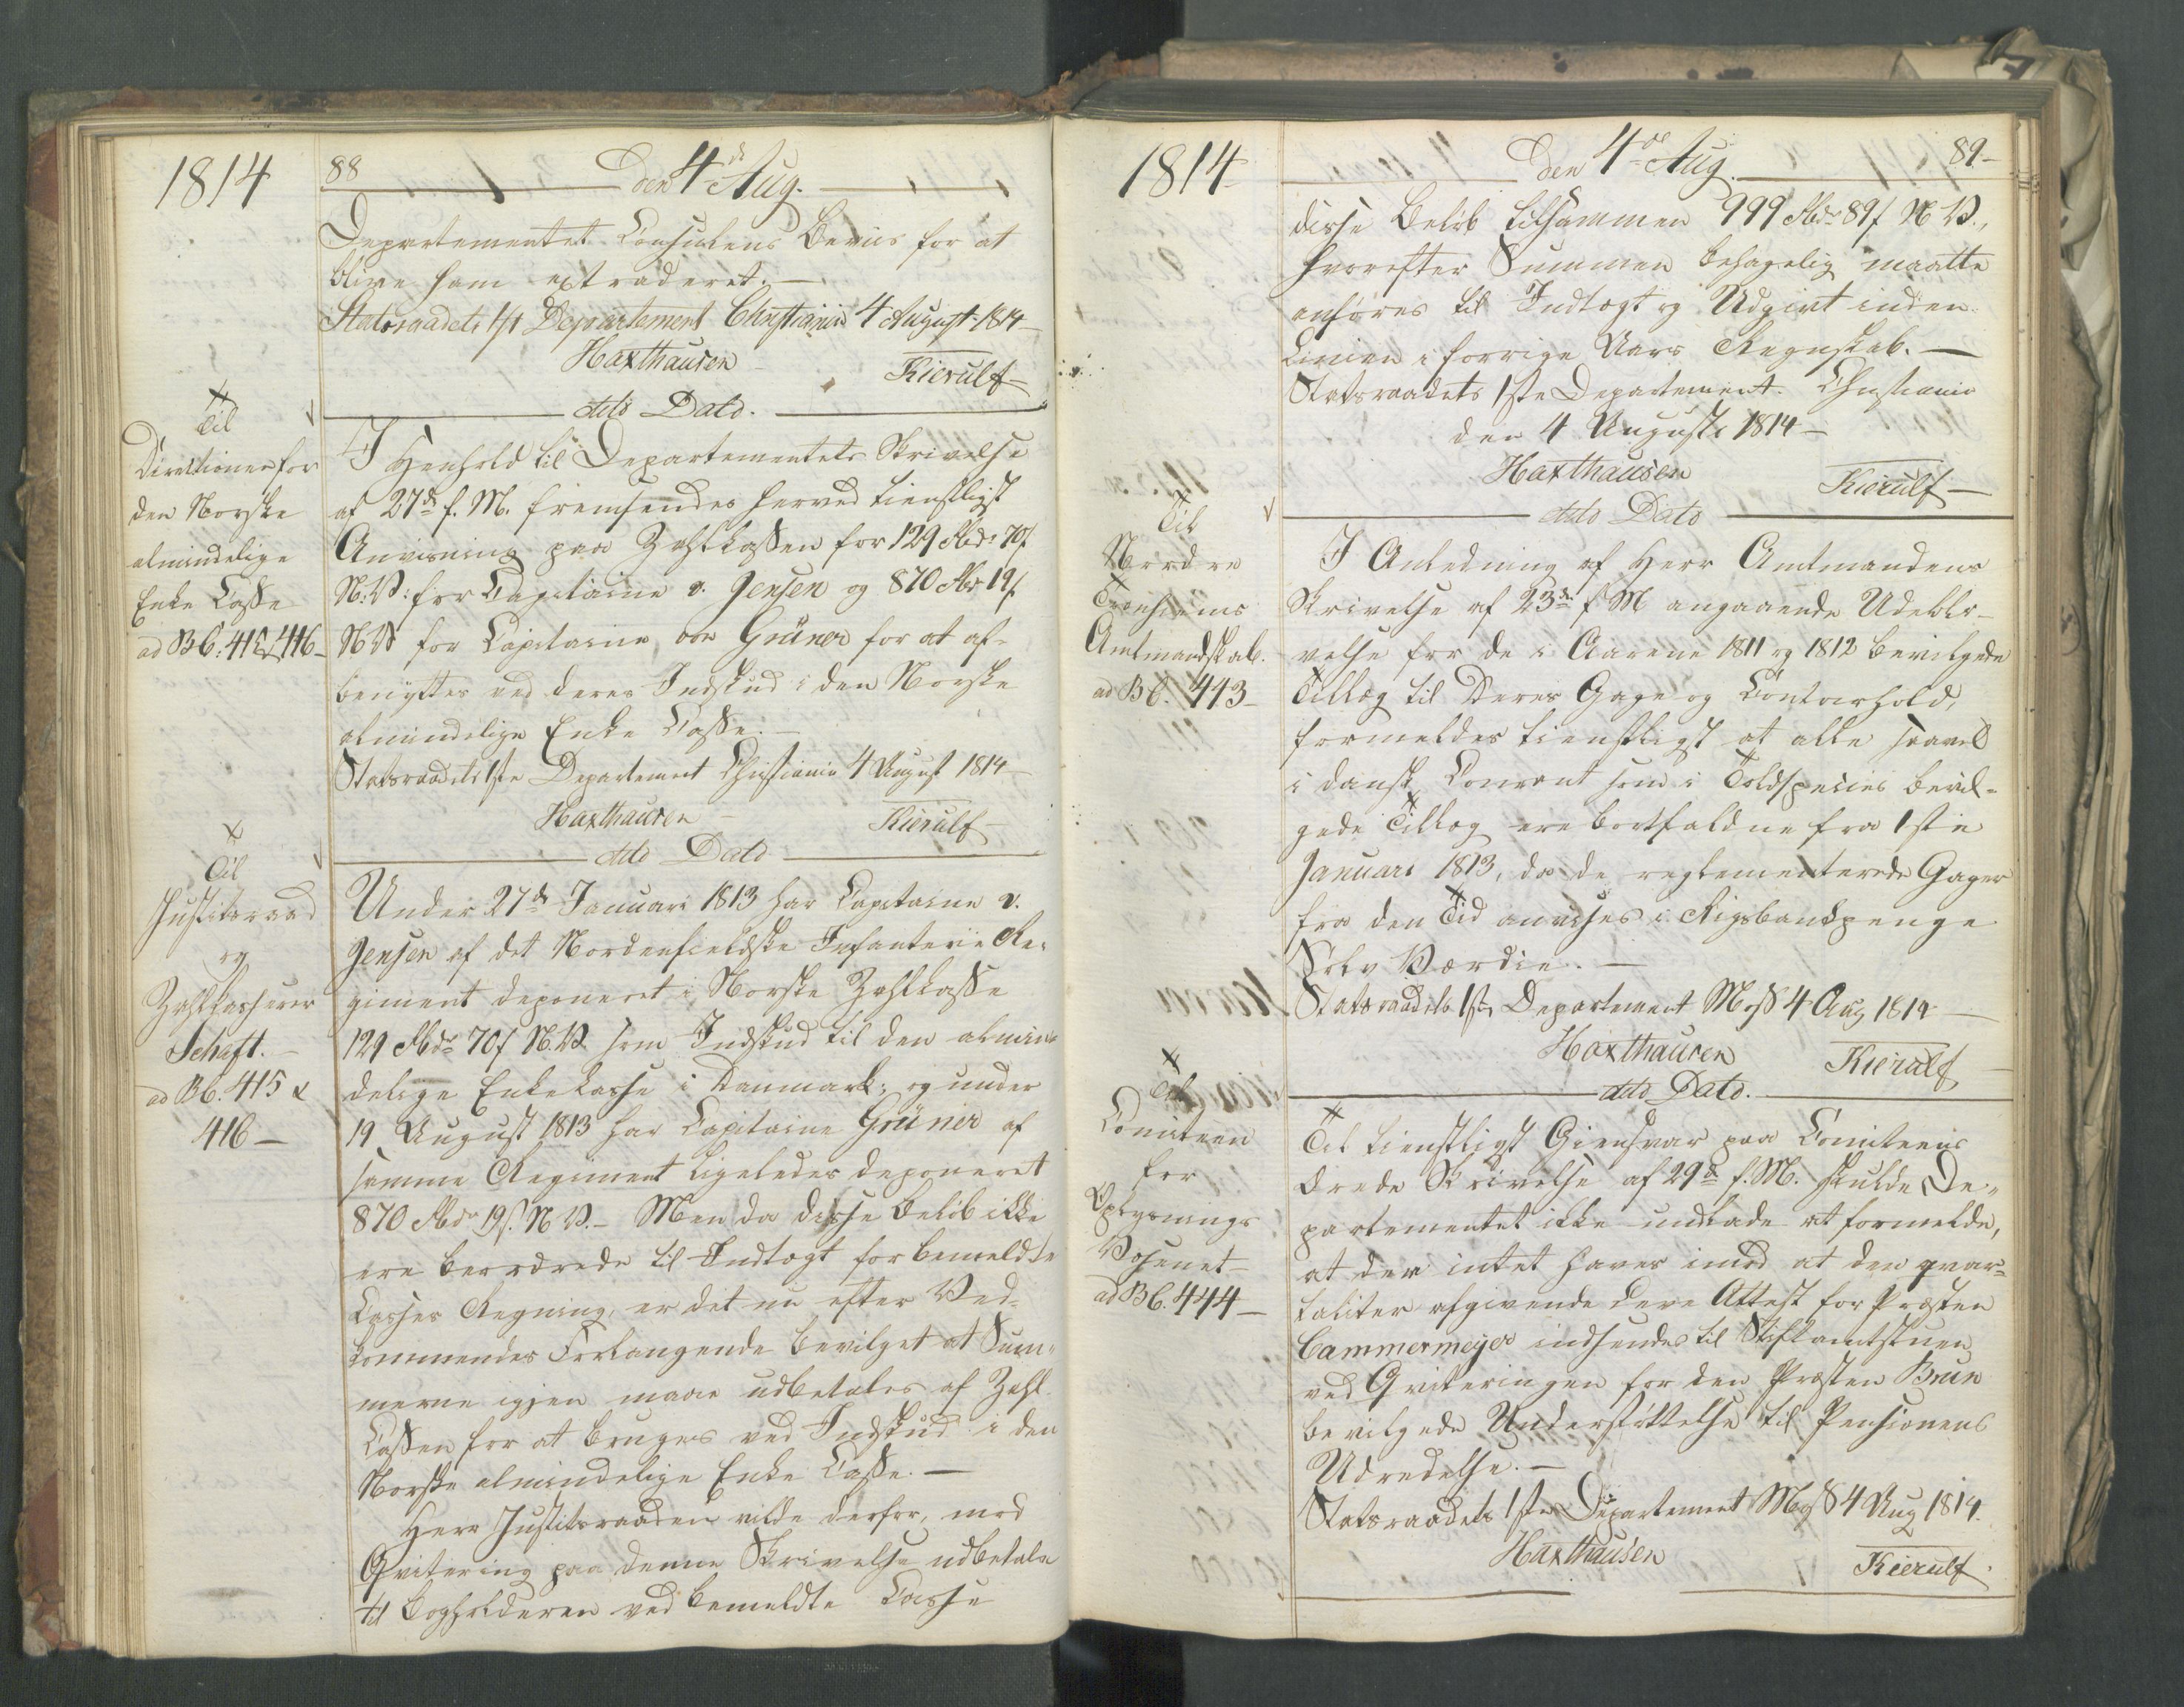 1814
88
den 4de Aug.
Departementet Consulens Beviis for at
blive ham extraderet. —
Statsraadets 1ste Departement Christiania 4 August 1814 —
Haxthausen
Kierulf —
dito Dato.
Til
Directionen for
den Norske
almindelige
Enke Casse
ad B6: 415 & 416 —
I Henhold til Departementets Skrivelse
af 27de f. M. fremsendes herved tienstligst
Anviisning paa Zahlkassen for 129 Rbdr 70 f
N: V: for Capitaine v. Jensen og 870 Rbdr 19 f.
N V for Capitaine von Grüner for at af-
benyttes ved deres Indskud i den Norske
almindelige Enke Casse. —
Statsraadets 1ste Departement Christiania 4 August 1814 —
Haxthausen —
Kierulf —
dito Dato
Til
Justitsraad
og
Zahlkasserer
Schaft. —
ad B6. 415 &
416 —
Under 27de Januari 1813 har Capitaine v.
Jensen af det Nordenfieldske Infanterie Re-
giment deponeret i Norske Zahlkasse
129 Rbdr 70 f N. V. som Indskud til den almin-
delige Enkekasse i Danmark; og under
19 August 1813 har Capitaine Grüner af
samme Regiment ligeledes deponeret
870 Rbdr 19 f. N V. — Men da disse Beløb ikke
ere beordrede til Indtægt for bemeldte
Casses Regning, er det nu efter Ved-
kommendes Forlangende bevilget at Sum-
merne igjen maae udbetales af Zahl-
Cassen for at bruges ved Indskud i den
Norske almindelige Enke Casse. —
Herr Justitsraaden vilde derfor, mod
Qvitering paa denne Skrivelse udbetale
til Bogholderen ved bemeldte Casse
1814
den 4de Aug.
89 —
disse Beløb tilsammen 999 Rbdr 89 f N V.,
hvorefter Summen behagelig maatte
anføres til Indtægt og Udgivt inden-
Linien i forrige Aars Regnskab. —
Statsraadets 1ste Departement. Christiania
den 4 August 1814 —
Haxthausen
Kierulf —
dito Dato
Til
Nordre
Tronhiems
Amtmandskab.
ad B6. 443 —
I Anledning af Herr Amtmandens
Skrivelse af 23de f M angaaende Udebli-
velse for de i Aarene 1811 og 1812 bevilgede
Tillæg til Deres Gage og Contoirhold,
formeldes tienstligst at alle saavel
i dansk Courant som i Toldspecies bevil-
gede Tillæg ere bortfaldne fra 1ste
Januari 1813, da de reglementerede Gager
fra den Tid anvises i Rigsbankpenge
Sølv Værdie. —
Statsraadets 1ste Departement Moss 4 Aug 1814 —
Haxthausen
Kierulf
dito Dato.
Til
Comiteen
for
Oplysnings
Væsenet —
ad B6. 444 —
Til tienstligst Giensvar paa Comiteens
ærede Skrivelse af 29de f. M. skulde De-
partementet ikke undlade at formelde,
at der intet haves imod at den qvar-
taliter afgivende Leve Attest for Præsten
Cammermeyer indsendes til Stiftamtstuen
ved Qviteringen for den Præsten Brun
bevilgede Understøttelse til Pensionens
Udredelse. —
Statsraadets 1ste Departement Moss 4 Aug 1814.
Haxthausen
Kierulf.